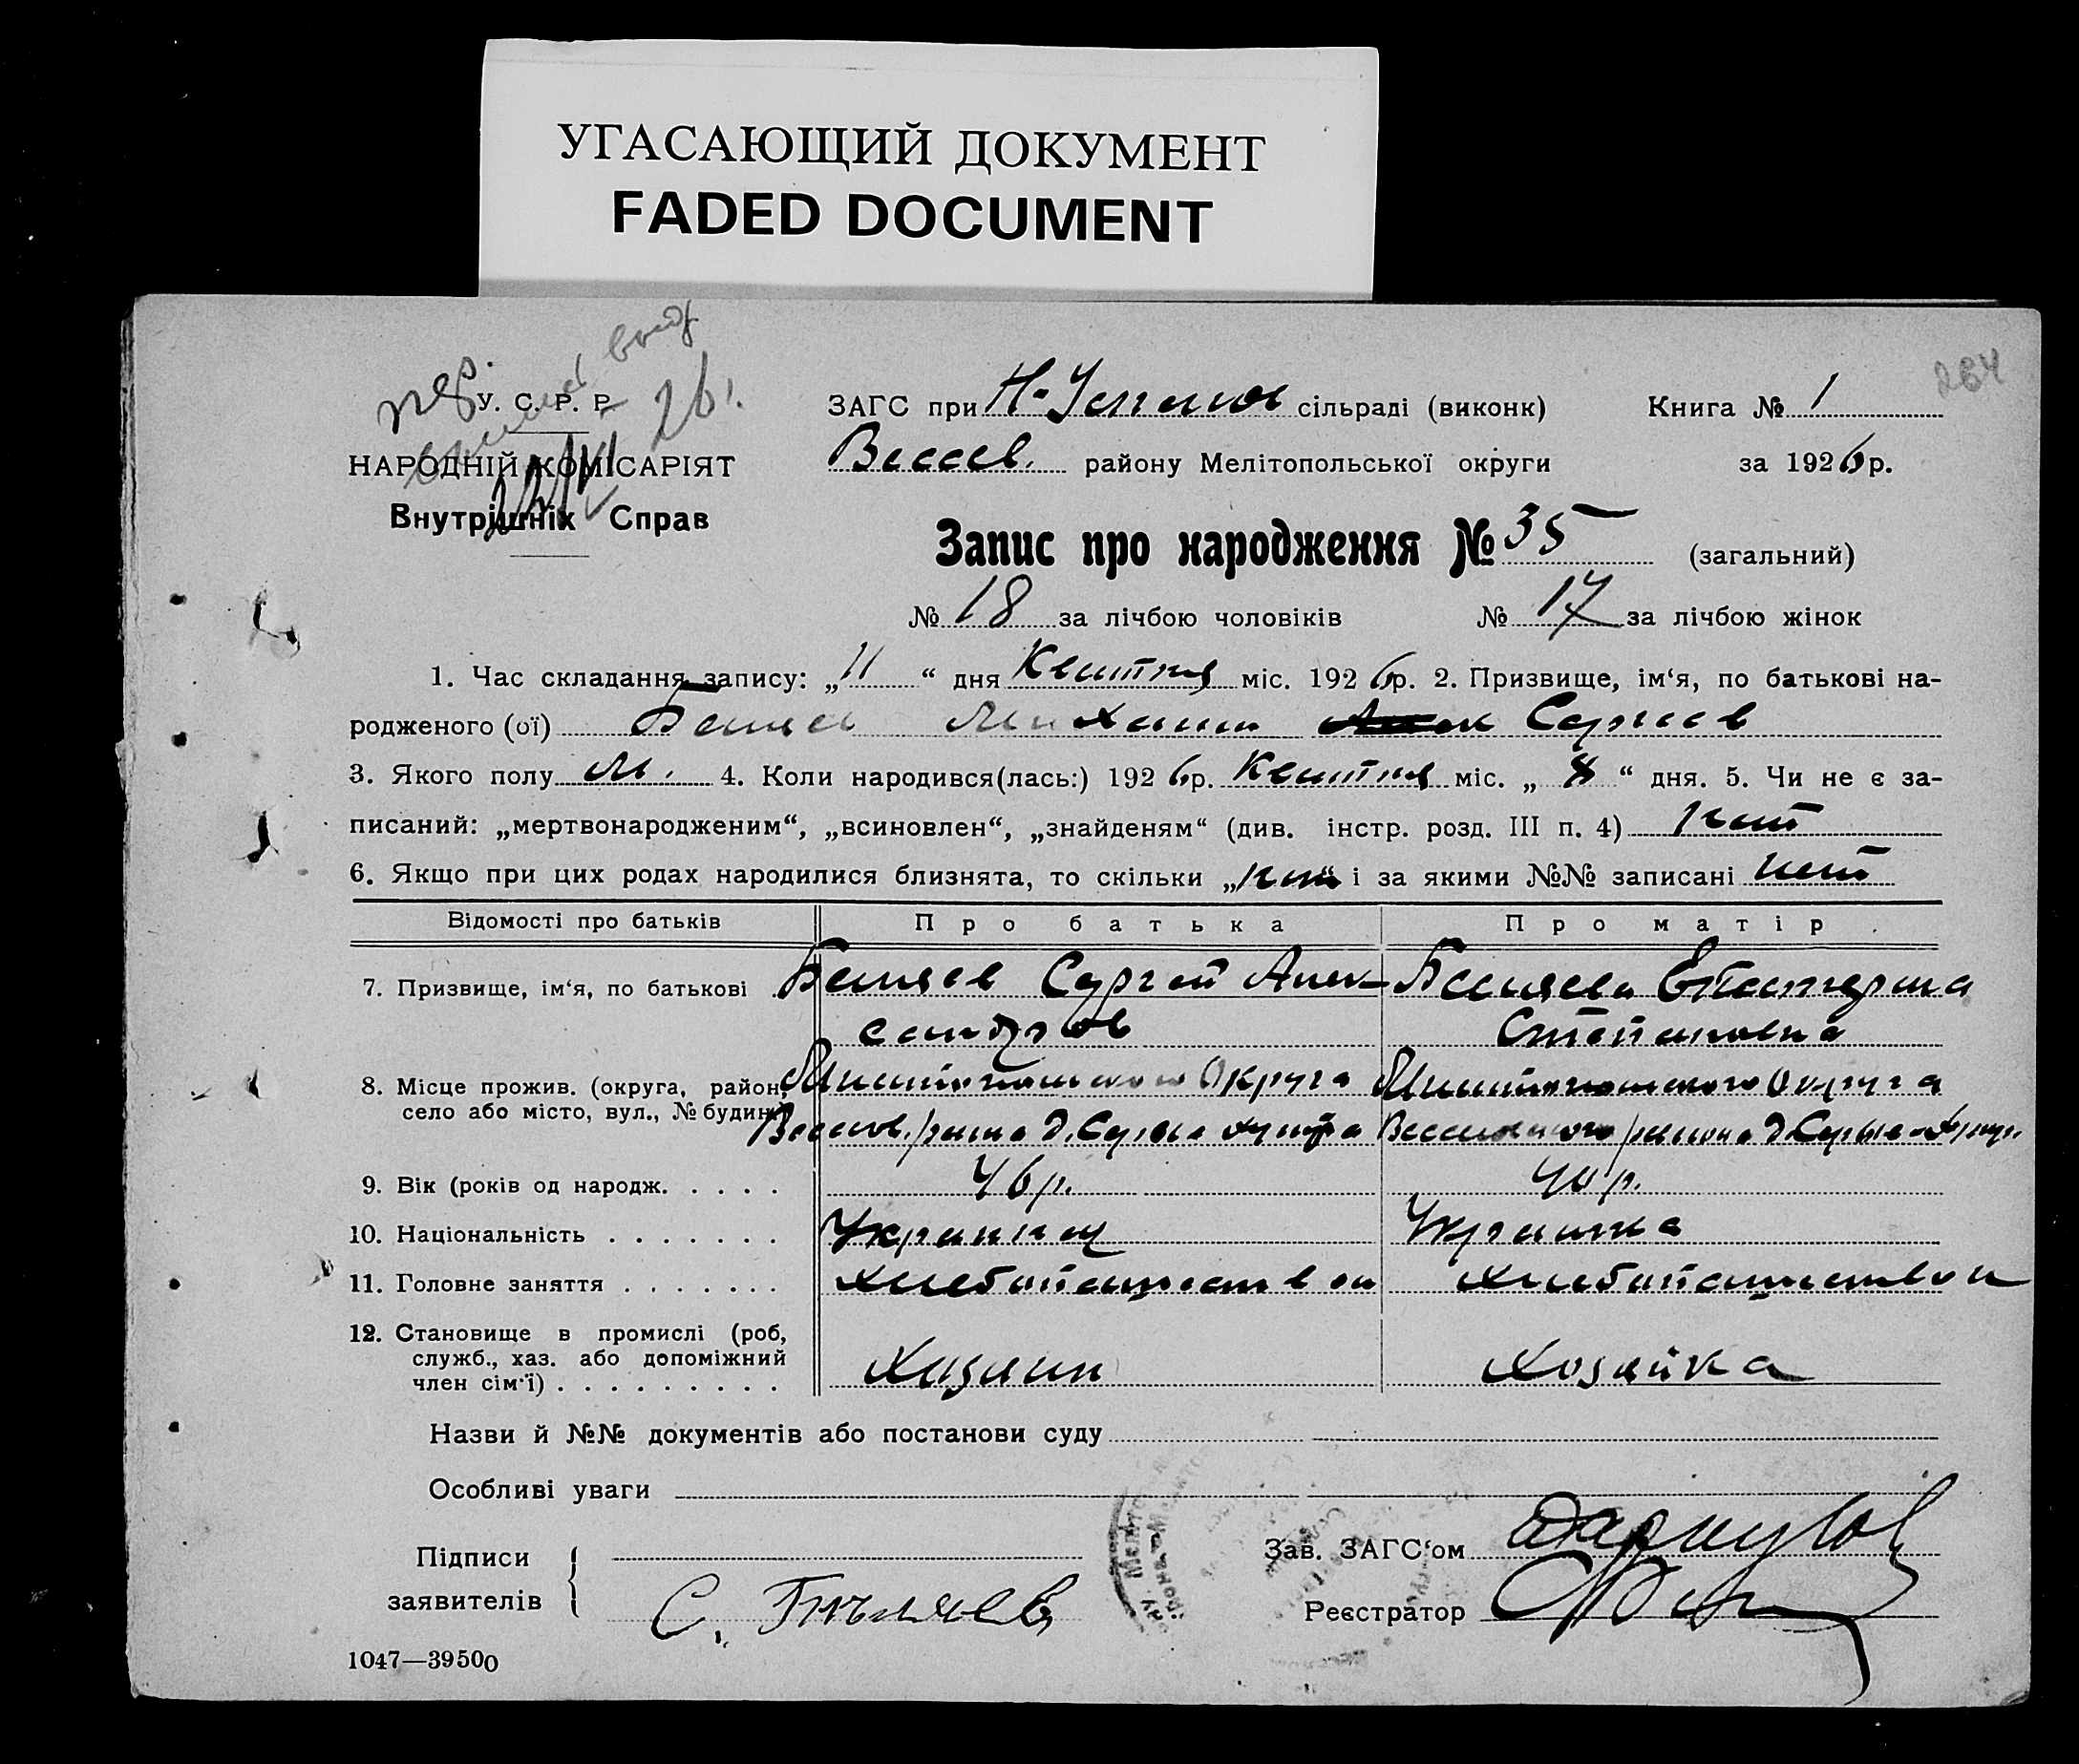 УГАСАЮЩИЙ ДОКУМЕНТ
FADED DOCUMENT
264
У. С. Р. Р. 26.
НАРОДНІЙ КОМІСАРІЯТ
Внутрішніх Справ
ЗАГС при сільраді (виконк) Книга № 1
Весел. району Мелітопольської округи за 1926р.
Запис про народження № 35 (загальний)
№ 18 за лічбою чоловіків № 17 за лічбою жінок
1. Час складання запису: „11“ дня Квитня міс. 1926р. 2. Призвище, ім‘я, по батькові на-
родженого (ої) Беляев Михаил Сергеев
3. Якого полу М. 4. Коли народився(лась:) 1926р. Квитня міс. „8“ дня. 5. Чи не є за-
писаний: „мертвонародженим“, „всиновлен“, „знайденям“ (див. інстр. розд. III п. 4) нет
6. Якщо при цих родах народилися близнята, то скільки „нет“ і за якими №№ записані нет
Відомості про батьків Про батька Про матір
7. Призвище, ім‘я, по батькові Беляев Сергей Алек- Беляева Екатерина
сандров Степановна
8. Місце прожив. (округа, район, Мелитопольского Округа Мелитопольского Округа
село або місто, вул., № будинк.) Весел. района д. района д.
9. Вік (років од народж. . . . . 46 р. 40 р.
10. Національність . . . . . . . Украинец Украинка
11. Головне заняття . . . . . . . хлебопашеством хлебопашеством
12. Становище в промислі (роб,
служб., хаз. або допоміжний Хозяин Хозяйка
член сім‘ї) . . . . . . . . .
Назви й №№ документів або постанови суду
Особливі уваги
Підписи Зав. ЗАГС‘ом
заявителів С. Беляев Реєстратор
1047—39500